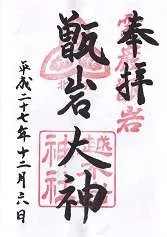 奉拝
甑岩大神
平成二十七年十二月六日
越木岩
神社